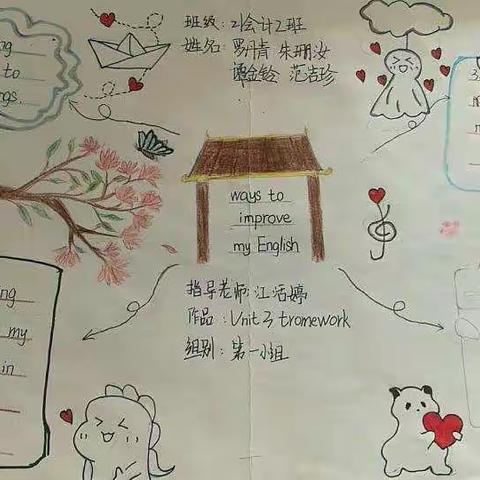 班级：21会计2班
姓名：罗丹青 朱珊汝
谭金铃 范吉珍
ng
to
ngs.
ways to
improve
my English
指导老师：江活婷
作品：Unit 3 tromework
组别：第一小组
ing
my
in